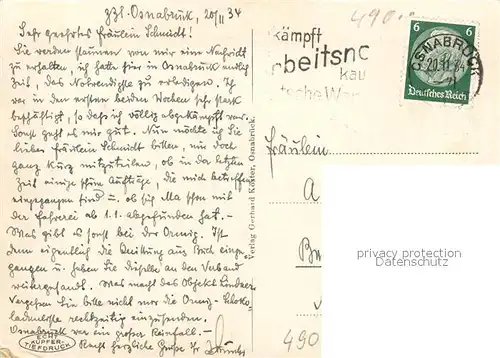 z.Zt. Osnabrück, 20/11 34
Sehr geehrtes Fräulein Schmidt!
Sie werden staunen von mir eine Nachricht
zu erhalten, ich hatte hier in Osnabrück endlich
Zeit, das Notwendigste zu erledigen. Ich
war in den ersten beiden Wochen sehr stark
beschäftigt, so daß ich völlig abgekämpft war.
Sonst geht es mir gut. Nun möchte ich Sie
liebes Fräulein Schmidt bitten, mir doch
ganz kurz mitzuteilen, ob in der letzten
Zeit einige schöne Aufträge, die mich betreffen
eingegangen sind u. ob sich Ma schon mit
der Fahrerei ab 1.1. abgefunden hat. -
Was gibt es sonst bei der
Ist
denn eigentlich die Quittung aus
gangen u. haben Sie dieselbe an den Verband
weitergesandt. Was macht das Objekt
Vergessen Sie bitte nicht mir die
rechtzeitig einzusenden.
Osnabrück war ein großer Reinfall. -
Recht herzliche Grüße Ihr
ECHT
KUPFER-
TIEFDRUCK
Verlag Gerhard Köster, Osnabrück.
490
kämpft
beitsno
kau
tsche War
6 6
Deutsches Reich
OSNABRÜCK
20.11.34
Fräulein
A
privacy protection
Datenschutz
490